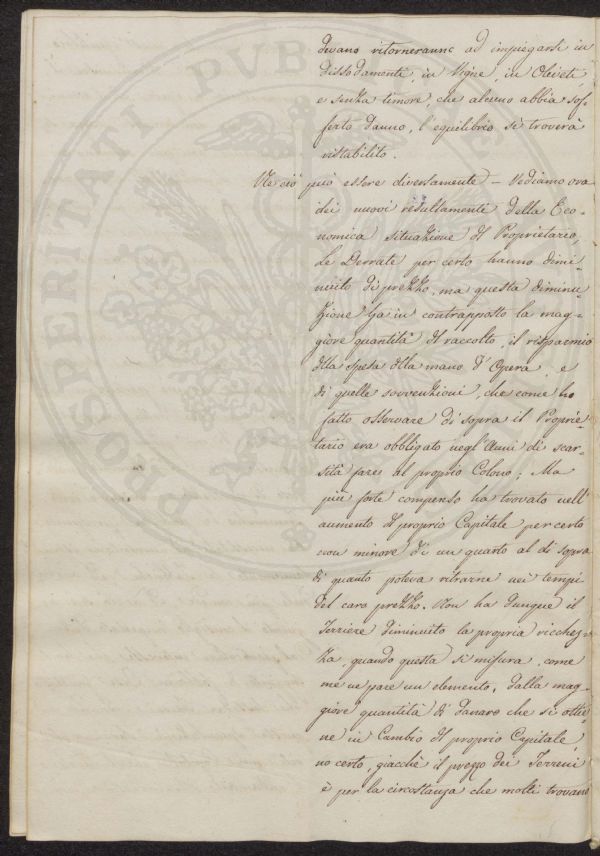 devano ritorneranno ad impiegarsi in
dissodamenti, in Vigne, in Oliveti,
e senza timore, che alcuno abbia sof-
ferto danno, l'equilibrio si troverà
ristabilito.
Ne ciò può essere diversamente – Vediamo ora
dei nuovi resultamenti della Eco-
nomica situazione del Proprietario,
Le Derrate per certo hanno dimi-
nuito di prezzo, ma questa diminu-
zione ha in contrapposto la mag-
giore quantità del raccolto, il risparmio
della spesa della mano d'Opera, e
di quelle sovvenzioni, che come ho
fatto osservare di sopra il Proprie-
tario era obbligato negl'Anni di scar-
sità fare al proprio Colono; Ma
più forte compenso ha trovato nell'
aumento del proprio Capitale per certo
non minore di un quarto al di sopra
di quanto poteva ritrarne nei tempi
del caro prezzo. Non ha dunque il
Terriere diminuito la propria ricchez-
za, quando questa si misura, come
me ne pare un elemento, dalla mag-
giore quantità di danaro che si ottie-
ne in Cambio del proprio Capitale,
no certo, giacchè il prezzo dei Terreni
è per la circostanza che molti trovano
PROSPERITATI PUB